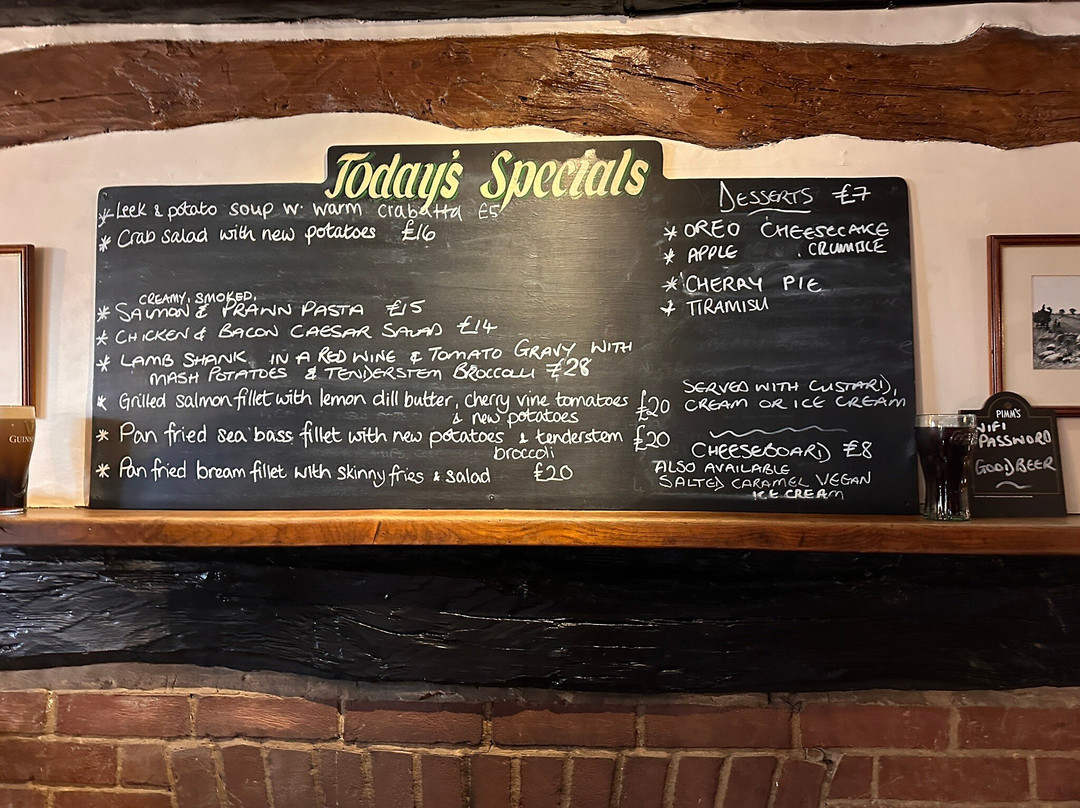 Today's Specials
* Leek & potato soup w. warm ciabatta £5
* Crab salad with new potatoes £16
CREAMY, SMOKED,
* SALMON & PRAWN PASTA £15
* CHICKEN & BACON CAESAR SALAD £14
* LAMB SHANK IN A RED WINE & TOMATO GRAVY WITH
MASH POTATOES & TENDERSTEM BROCCOLI £28
* Grilled salmon fillet with lemon dill butter, cherry vine tomatoes £20
& new potatoes
* Pan fried sea bass fillet with new potatoes & tenderstem £20
broccoli
* Pan fried bream fillet with skinny fries & salad £20
DESSERTS £7
* OREO CHEESECAKE
* APPLE CRUMBLE
* CHERRY PIE
* TIRAMISU
SERVED WITH CUSTARD,
CREAM OR ICE CREAM
CHEESEBOARD £8
ALSO AVAILABLE
SALTED CARAMEL VEGAN
ICE CREAM
PIMM'S
WIFI
PASSWORD
GOODBEER
GUINN